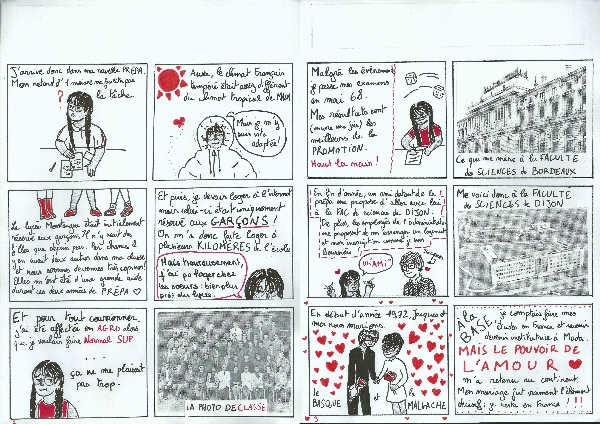 J'arrive donc dans ma nouvelle PRÉPA.
Mon retard d'1 mois ne me facilite pas
la tâche.
?
Aussi, le climat français
tempéré était assez différent
du climat tropical de MADA
Mais je m'y
suis vite
adaptée!
Le lycée Montaigne était initialement
réservé aux garçons. Il n'y avait des
filles que depuis peu. Par chance, il
y en avait deux autres dans ma classe
et nous sommes devenues très copines!
Elles m'ont été d'une grande aide
durant ces deux années de PRÉPA ♡
Et puis, je devais loger à l'internat
mais celui-ci était uniquement
réservé aux GARÇONS!
On m'a donc faite loger à
plusieurs KILOMÈRES de l'école
Mais heureusement,
j'ai pu loger chez
les soeurs: bien plus
près du lycée.
Et pour tout couronner,
j'ai été affectée en AGRO alors
que je voulais faire Normal SUP
...
ça ne me plaisait
pas trop.
LA PHOTO DE CLASSE
Malgré les événements
je passe mes examens
en mai 68.
Mes résultats sont
(encore une fois) les
meilleurs de la
PROMOTION.
Haut la main!
Ce qui me mène à la FACULTÉ
des SCIENCES de BORDEAUX
En fin d'année, un ami datant de la
prépa me propose d'aller avec lui
à la FAC de sciences de DIJON.
De plus, les employés de l'administration
me proposent de m'arranger un logement
et mon inscription comme je suis
Boursière!
UN AMI
Me voici donc à la FACULTÉ
des SCIENCES de DIJON
En début d'année 1972, Jacques et
moi nous marions.
le
BASQUE
et
la
MALGACHE
À la
BASE,
je comptais faire mes
études en France et revenir
devenir institutrice à Mada.
MAIS LE POUVOIR DE
L'AMOUR
m'a retenue au continent.
Mon mariage fut vraiment l'élément
décisif: je reste en France!!!
3